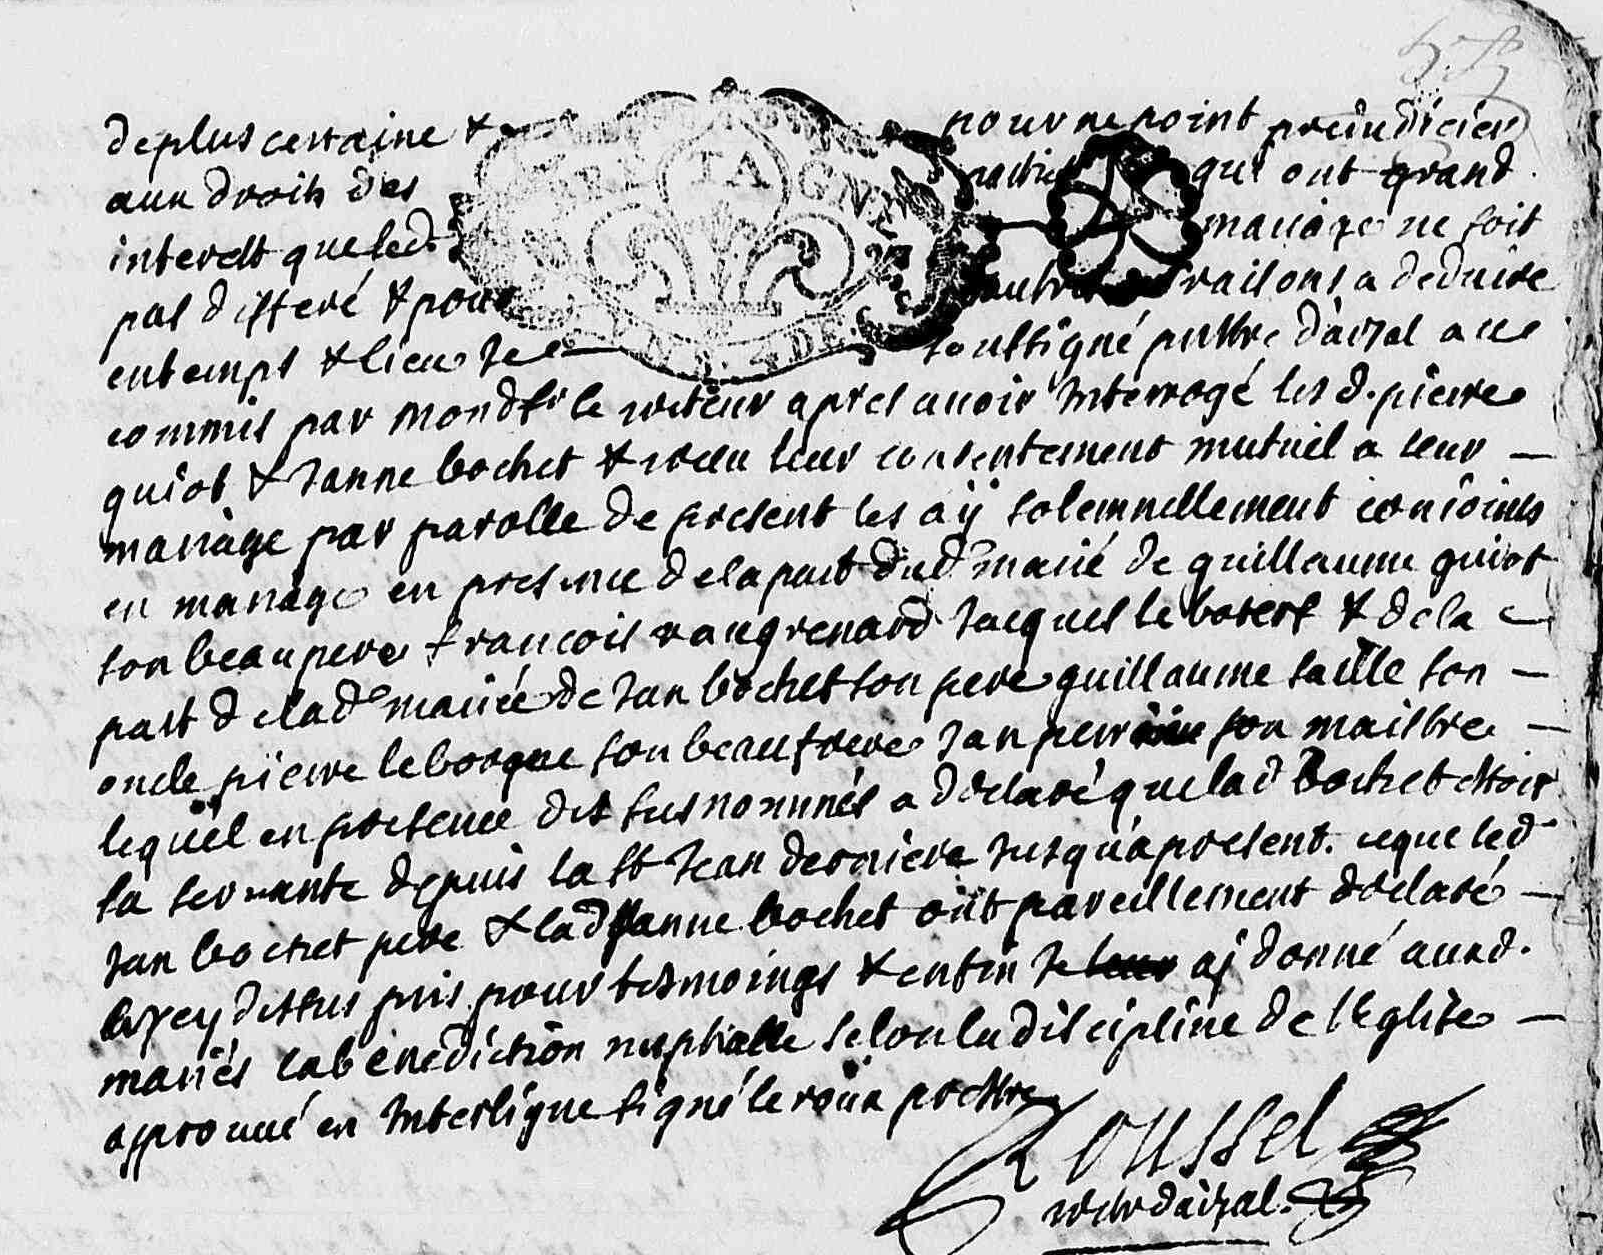 de plus certaine & pour ne point preiudicier
aux droits des parties qui ont grand
interest que led mariage ne soit
pas differé & pour autres raisons a deduire
en temps & lieu Je soussigné prestre d'aizal aue
commis par Mondsr le recteur apres auoir Interrogé lesd. pierre
quiot & Janne bochet & receu leur consentement mutuel a leur —
mariage par parolle de present les aÿ solemnellement conioints
en mariage en presence de la part dud marié de guillaume guiot
son beau pere francois vaugrenard Jacques le boterf & de la
part de lad mariée de Jan bochet son pere guillaume saille son —
oncle pierre le borgne son beau frere Jan perrin son maistre —
lequel en presence des susnommés a declaré que lad bochet estoit
sa seruante depuis la st Jean derniere Jusqu'a present. ce que led
Jan bochet pere & lad Janne bochet ont pareillement declaré —
cy dessus pris pour tesmoings & enfin Je leur aj donné auxd.
mariés la benediction nuptialle selon la discipline de l'Eglise —
approuué en Interligne signé le roüx prestre
Roussel
recteur d'aizal.